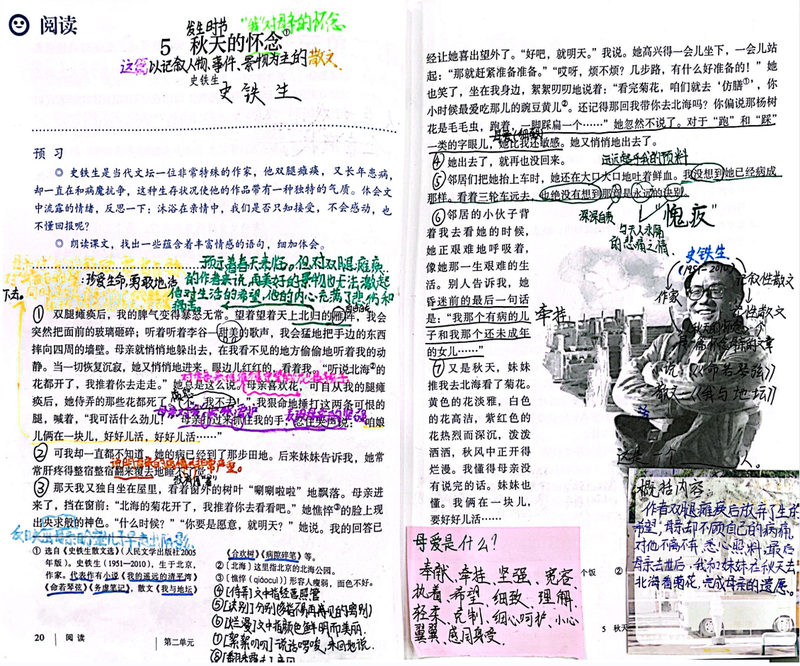 阅读
发生时节
"我"对母亲的怀念
5 秋天的怀念①
这篇以记叙人物、事件、景物为主的散文
史铁生
史铁生
预习
◎ 史铁生是当代文坛一位非常特殊的作家，他双腿瘫痪，又长年患病，
却一直在和病魔抗争，这种生存状况使他的作品带有一种独特的气质。体会文
中流露的情绪，反思一下：沐浴在亲情中，我们是否只知接受，不会感动，也
不懂回报呢？
◎ 朗读课文，找出一些蕴含着丰富情感的语句，细加体会。
珍爱生命，勇敢地活
下去。
预示着春天来临。但对双腿瘫痪
的作者来说，再美好的景物也无法激起
他对生活的希望，他的内心充满了悲伤和
① 双腿瘫痪后，我的脾气变得暴怒无常。望着望着天上北归的雁阵，我会
突然把面前的玻璃砸碎；听着听着李谷一甜美的歌声，我会猛地把手边的东西
摔向四周的墙壁。母亲就悄悄地躲出去，在我看不见的地方偷偷地听着我的动
静。当一切恢复沉寂，她又悄悄地进来，眼边儿红红的，看着我。"听说北海②的
花都开了，我推着你去走走。"她总是这么说。母亲喜欢花，可自从我的腿瘫
痪后，她侍弄的那些花都死了。"不，我不去！"我狠命地捶打这两条可恨的
腿，喊着，"我可活什么劲儿！"母亲扑过来抓住我的手，忍住哭声说："咱娘
儿俩在一块儿，好好儿活，好好儿活……"
② 可我却一直都不知道，她的病已经到了那步田地。后来妹妹告诉我，她
常常肝疼得整宿整宿翻来覆去地睡不了觉。
③ 那天我又独自坐在屋里，看着窗外的树叶"唰唰啦啦"地飘落。母亲进
来了，挡在窗前："北海的菊花开了，我推着你去看看吧。"她憔悴③的脸上现
出央求般的神色。"什么时候？""你要是愿意，就明天？"她说。我的回答已
① 选自《史铁生散文选》（人民文学出版社2005
年版）。史铁生（1951—2010），生于北京，
作家。代表作有小说《我的遥远的清平湾》
《命若琴弦》《务虚笔记》，散文《我与地坛》
《合欢树》《病隙碎笔》等。
②〔北海〕这里指北京的北海公园。
③〔憔悴（qiáocuì）〕形容人瘦弱，面色不好。
④【侍弄】文中指经营照管
⑥【烂漫】文中指颜色鲜明而美丽
⑦【絮絮叨叨】说话啰嗦，来回地说。
20 阅读
第二单元
经让她喜出望外了。"好吧，就明天。"我说。她高兴得一会儿坐下，一会儿站
起："那就赶紧准备准备。""哎呀，烦不烦？几步路，有什么好准备的！"她
也笑了，坐在我身边，絮絮叨叨地说着："看完菊花，咱们就去'仿膳'①，你
小时候最爱吃那儿的豌豆黄儿②。还记得那回我带你去北海吗？你偏说那杨树
花是毛毛虫，跑着，一脚踩扁一个……"她忽然不说了。对于"跑"和"踩"
一类的字眼儿，她比我还敏感。她又悄悄地出去了。
④ 她出去了，就再也没回来。
远远超乎我的预料
⑤ 邻居们把她抬上车时，她还在大口大口地吐着鲜血。我没想到她已经病成
那样。看着三轮车远去，也绝没有想到那竟是永远的诀别。
深深自责
令于人永痛
的悲痛之情
愧疚
⑥ 邻居的小伙子背
着我去看她的时候，
她正艰难地呼吸着，
像她那一生艰难的生
活。别人告诉我，她
昏迷前的最后一句话
是："我那个有病的儿
子和我那个还未成年
的女儿……"
牵挂
⑦ 又是秋天，妹妹
推我去北海看了菊花。
黄色的花淡雅，白色
的花高洁，紫红色的
花热烈而深沉，泼泼
洒洒，秋风中正开得
烂漫。我懂得母亲没
有说完的话。妹妹也
懂。我俩在一块儿，
要好好儿活……
史铁生
（1951~2010）
作家
记叙性散文
母爱是什么？
奉献、牵挂、坚强、宽容
执着、希望、细致、理解
轻柔、克制、细心呵护、小心
翼翼、感同身受、
概括内容：
作者双腿瘫痪后放弃了生活
希望，母亲却不顾自己的病痛，
对他不离不弃、悉心照料，最后
母亲去世后，我和妹妹在秋天去
北海看菊花，完成母亲的遗愿。
5 秋天